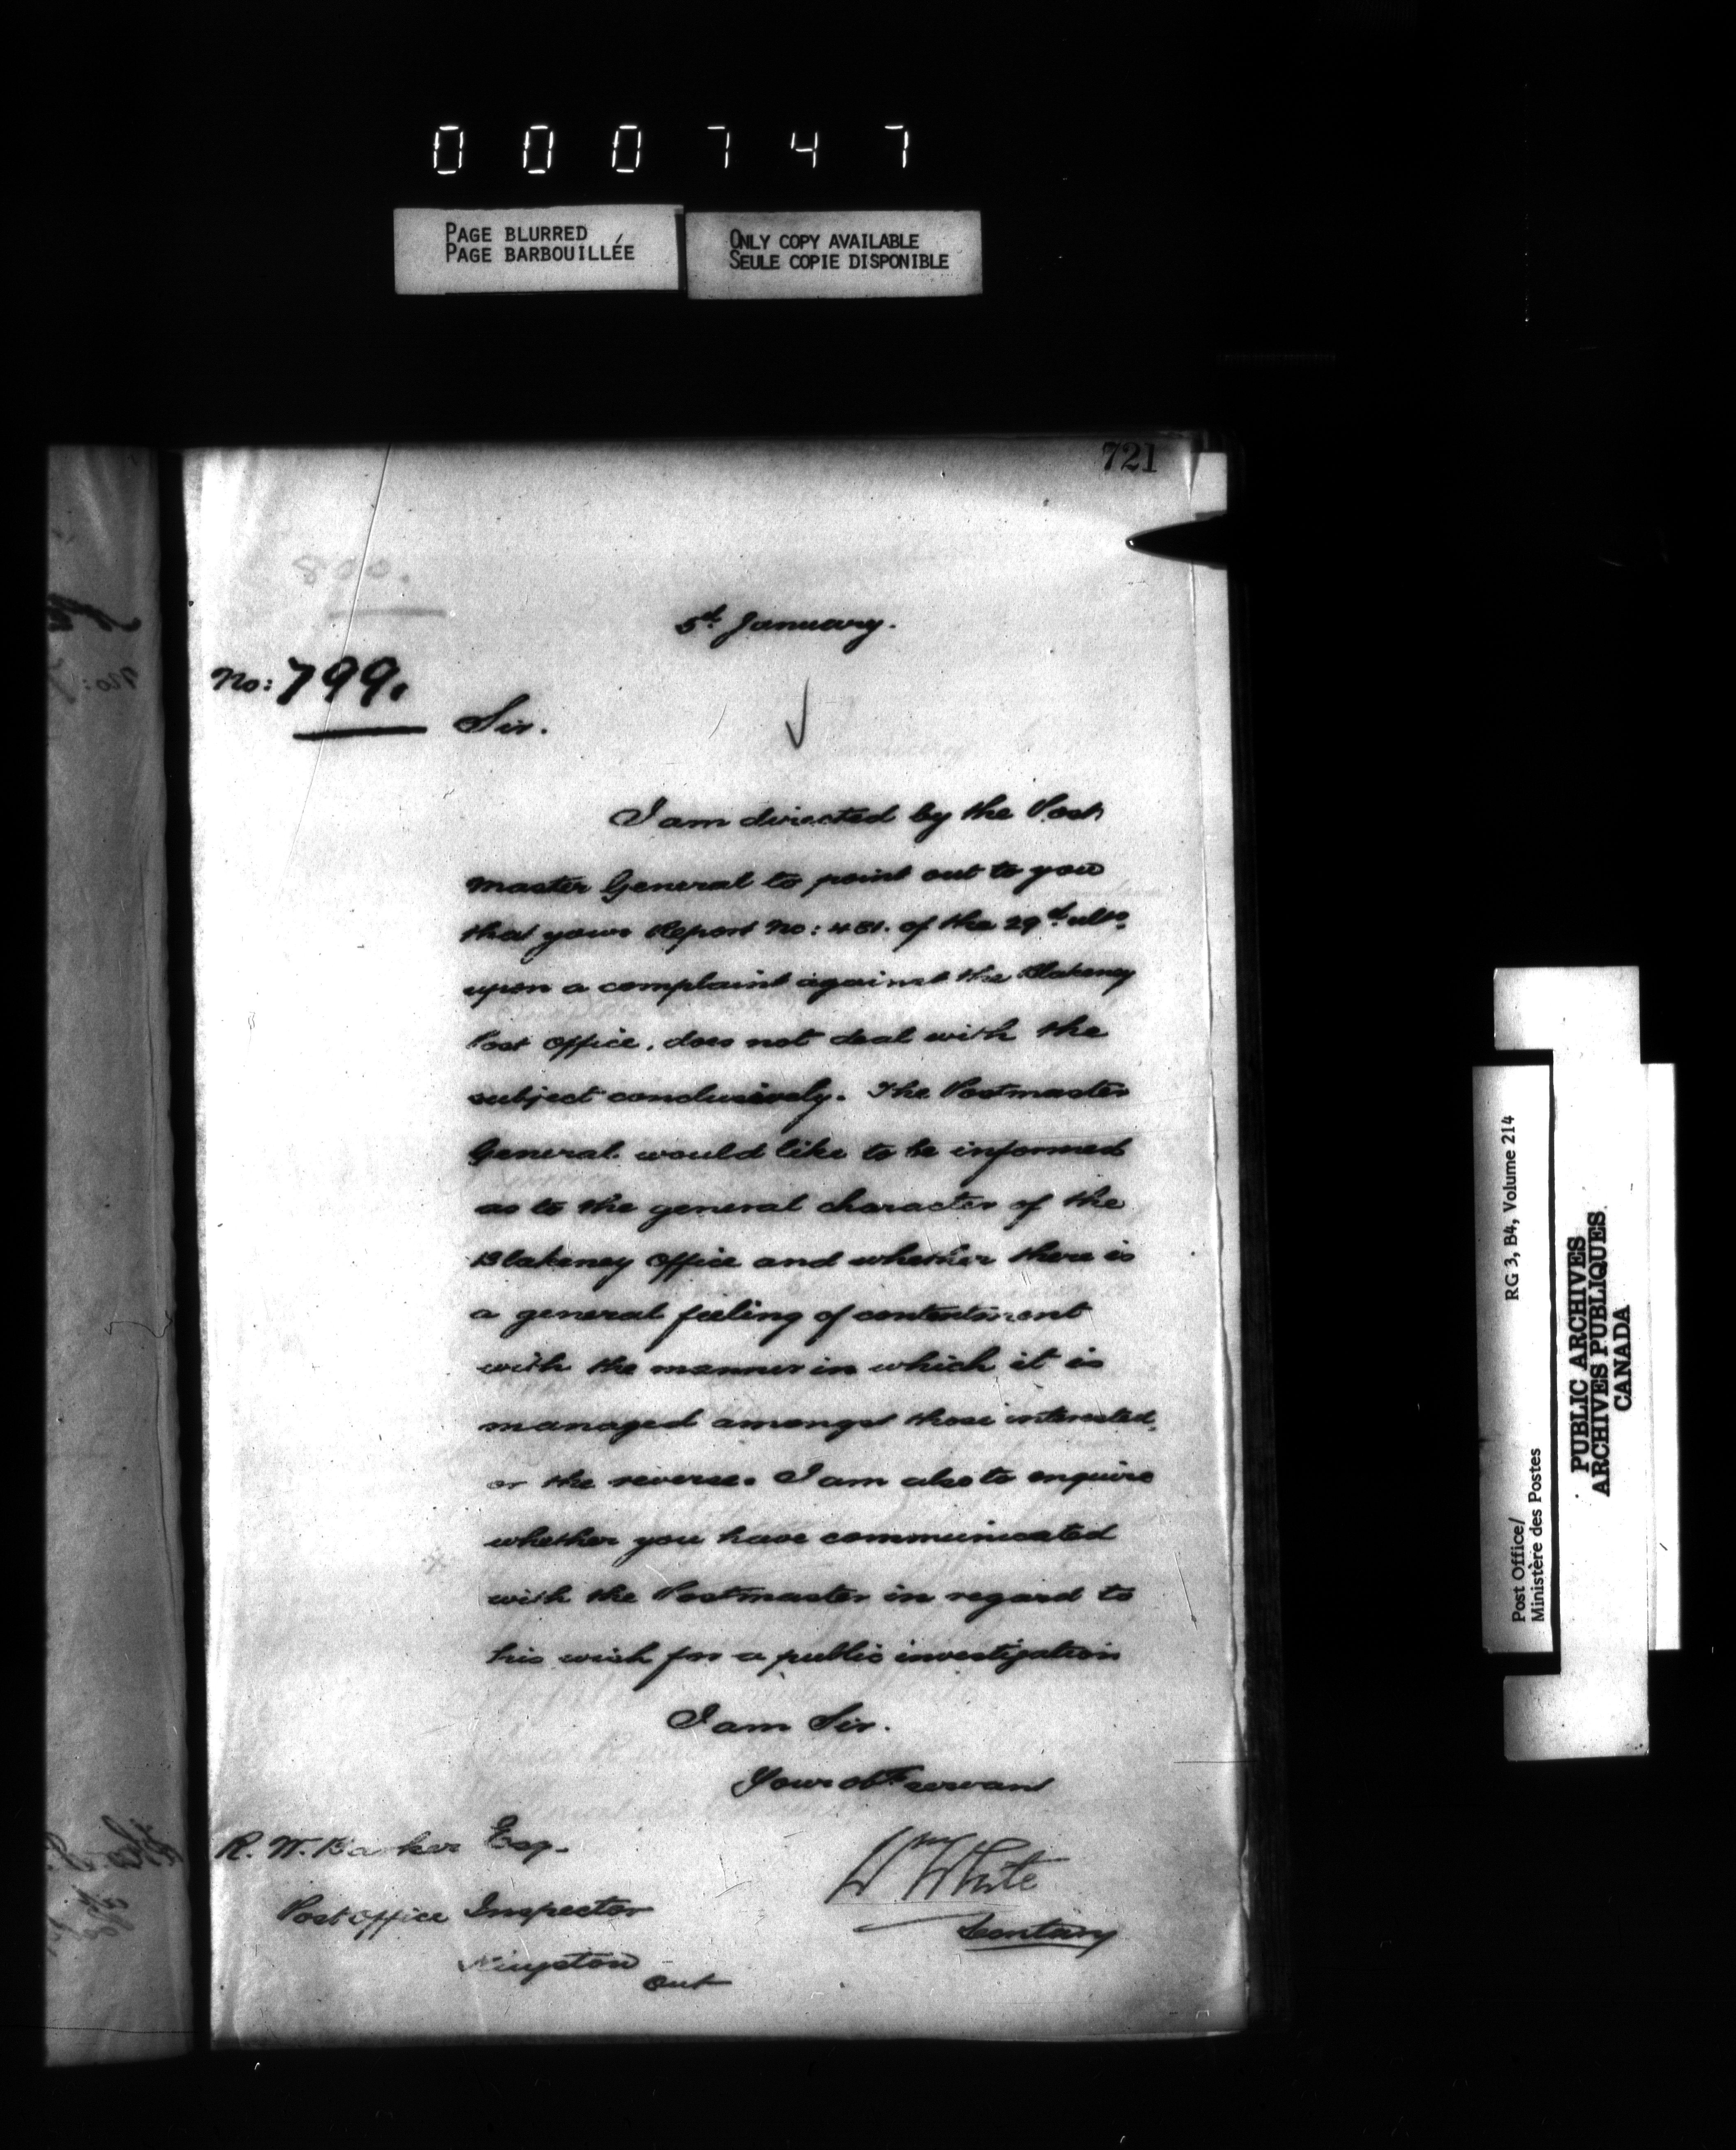 000747
PAGE BLURRED
PAGE BARBOUILLÉE
ONLY COPY AVAILABLE
SEULE COPIE DISPONIBLE
721
800.
5th January.
No: 799.
Sir.
I am directed by the Post
Master General to point out to you
that your Report No: 481. of the 29th ulto.
upon a complaint against the Blakeney
Post Office, does not deal with the
subject conclusively. The Postmaster
General would like to be informed
as to the general character of the
Blakeney Office and whether there is
a general feeling of contentment
with the manner in which it is
managed amongst those interested,
or the reverse. I am also to enquire
whether you have communicated
with the Postmaster in regard to
his wish for a public investigation
I am Sir.
Your obt servant
R. W. Barker Esq.
Wm White
Post Office Inspector
Secretary
Kingston
Ont
RG 3, B4, Volume 214
Post Office/
Ministère des Postes
PUBLIC ARCHIVES
ARCHIVES PUBLIQUES
CANADA